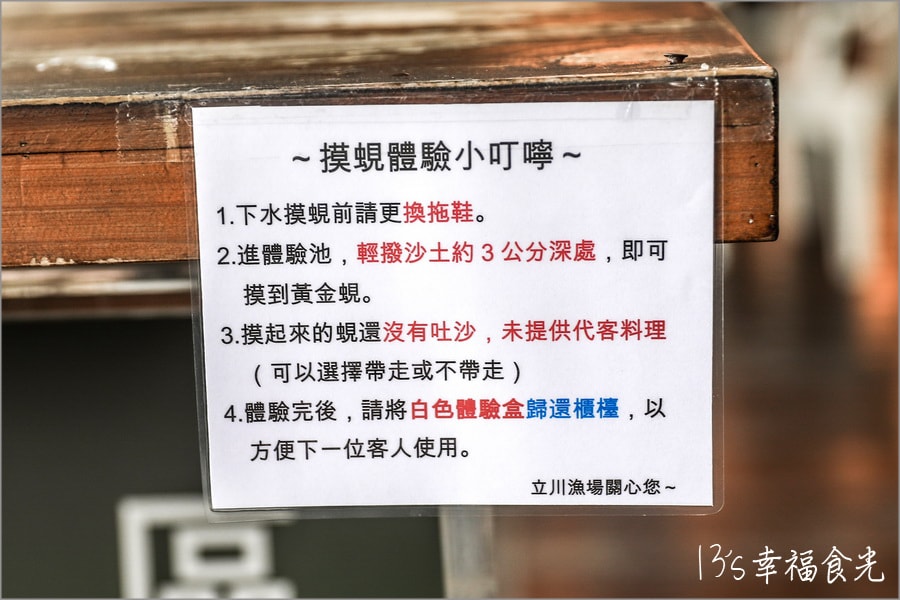 ～摸蜆體驗小叮嚀～
1.下水摸蜆前請更換拖鞋。
2.進體驗池，輕撥沙土約 3 公分深處，即可
摸到黃金蜆。
3.摸起來的蜆還沒有吐沙，未提供代客料理
（可以選擇帶走或不帶走）
4.體驗完後，請將白色體驗盒歸還櫃檯，以
方便下一位客人使用。
立川漁場關心您～
13's幸福食光